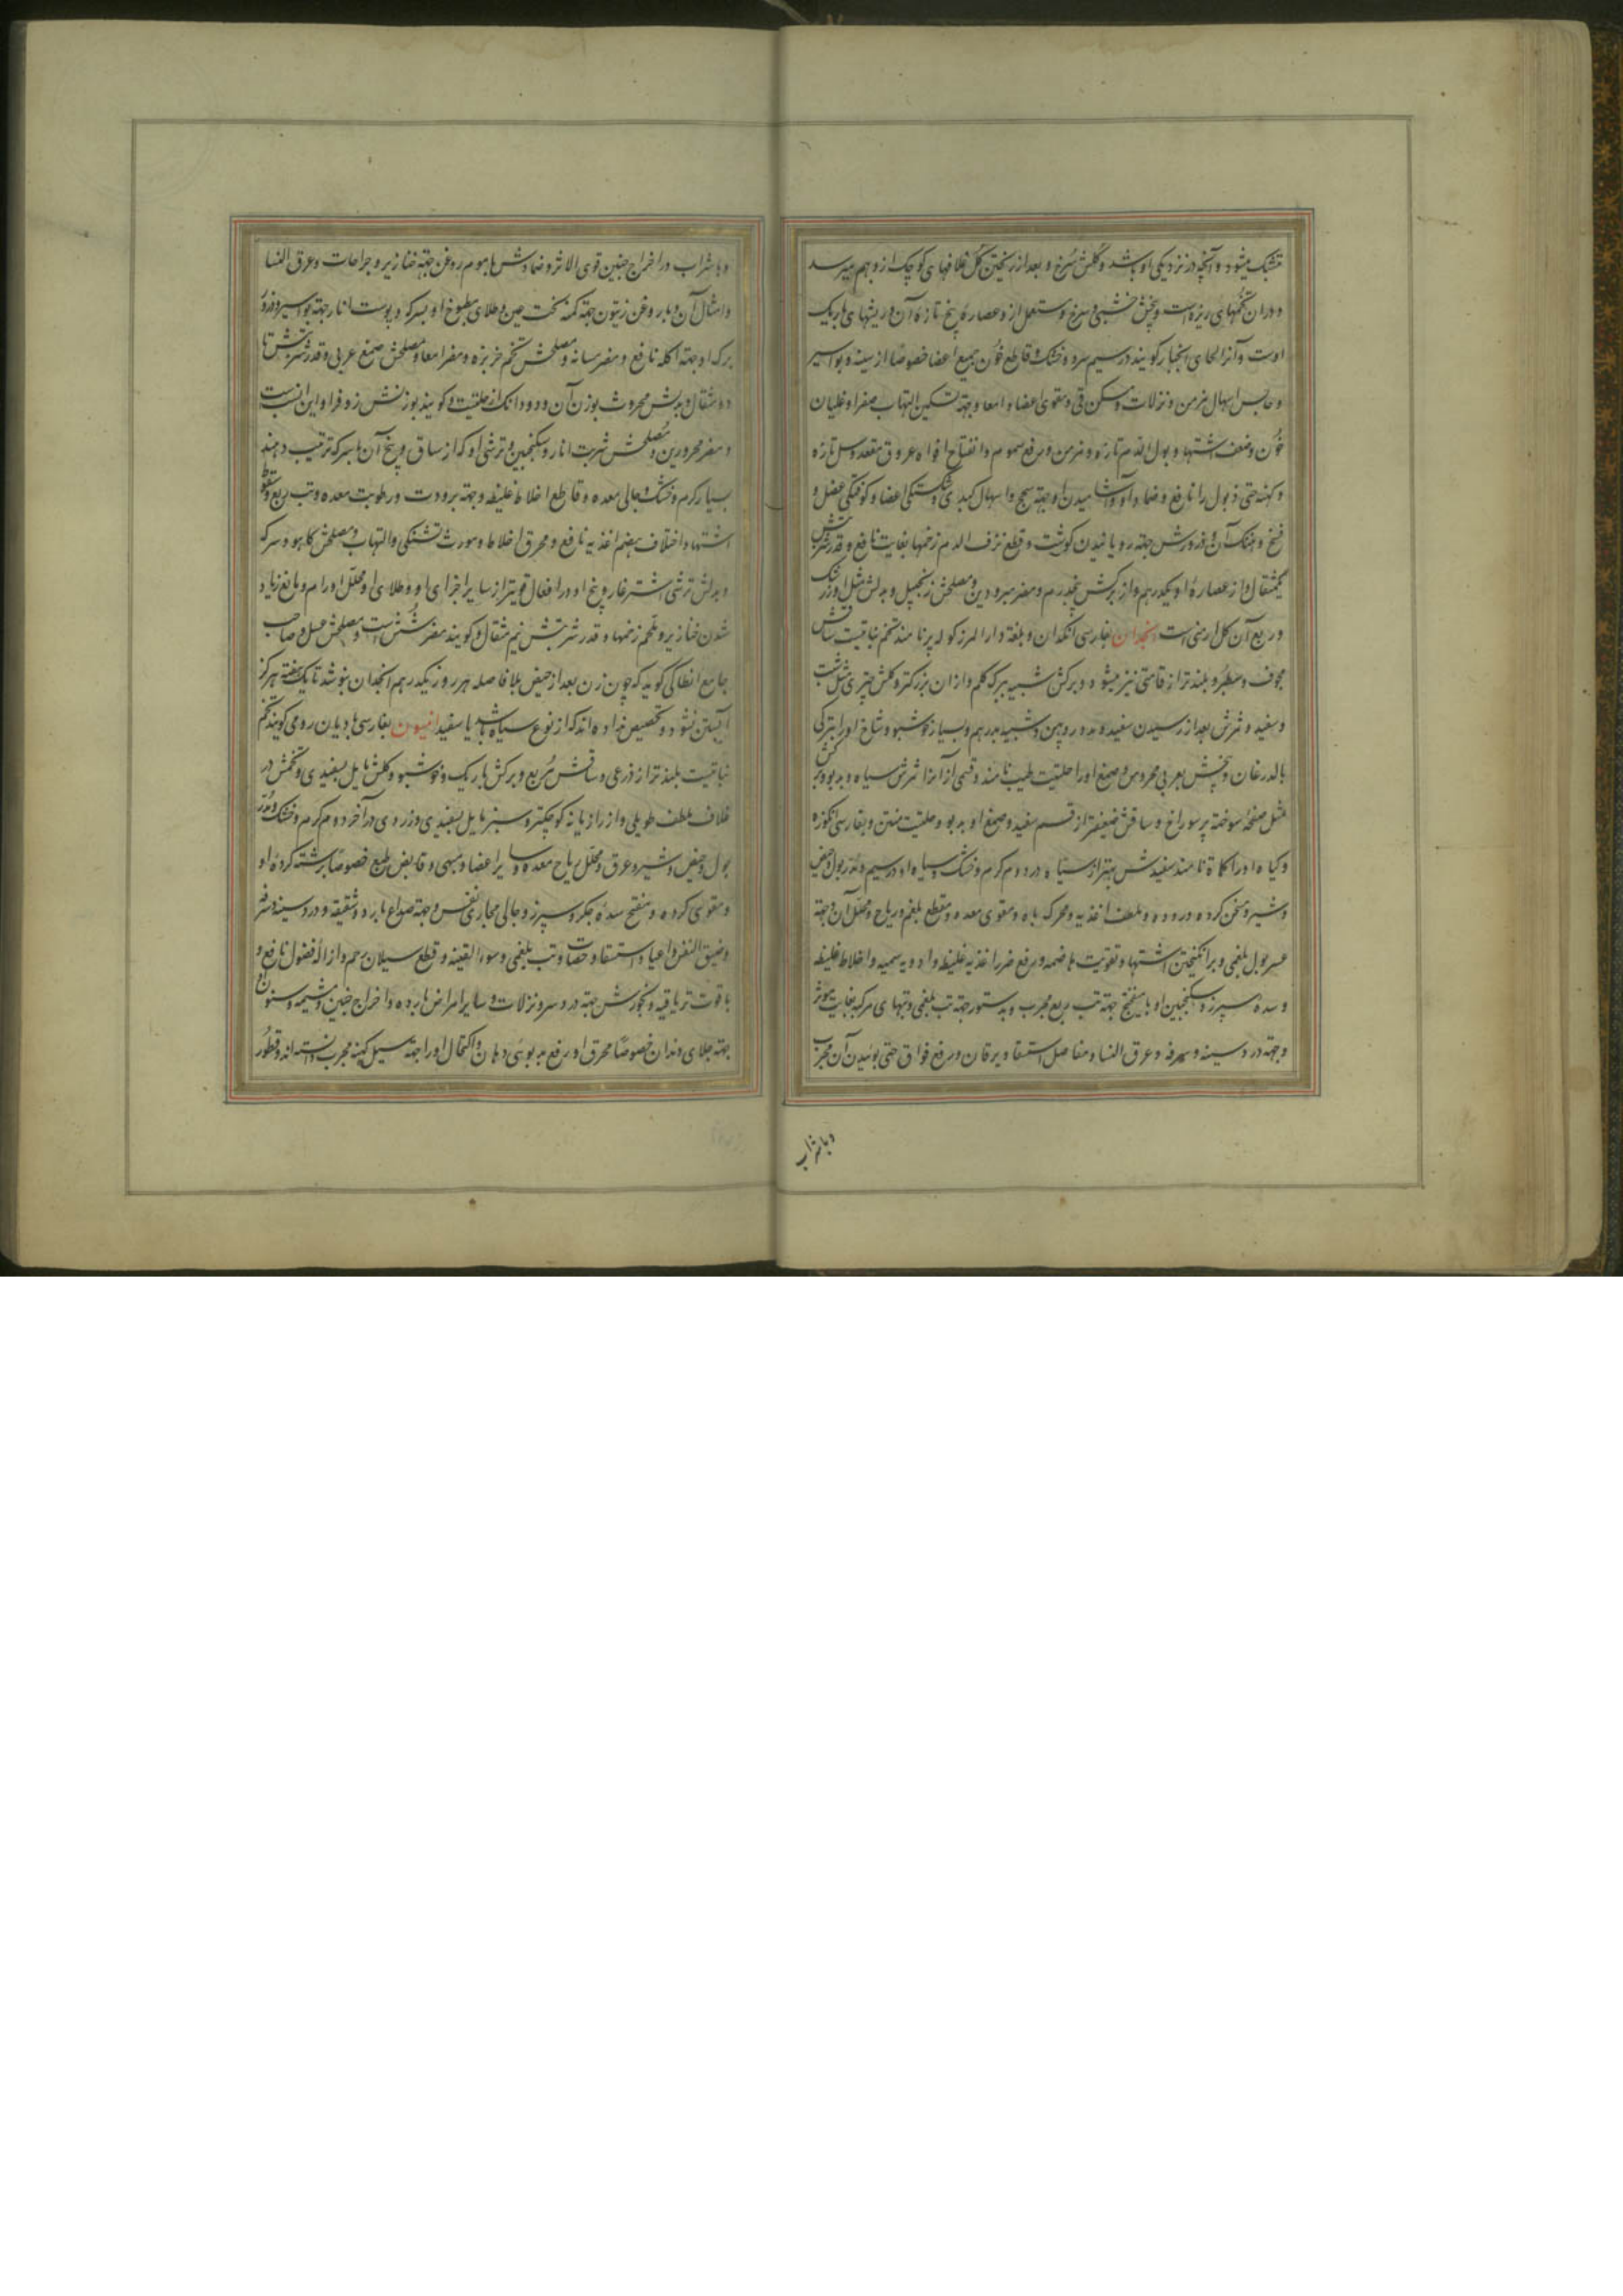 متشبک میشود و آنچه در نزدیکی او باشد و گلش سرخ و بعد از ریختن گل غلافهای کوچک ازو بهم میرسد
و در ان تخمهای ریزه است و بیخش خشبی و سرخ و مستعمل ازو عصاره بیخ تازه آن و ریشهای باریک
اوست و آنرا لحای انجبار گویند در سیم سرد و خشک و قاطع خون جمیع اعضا خصوصا از سینه و بواسیر
و حابس اسهال مزمن و نزلات و مسکن قی و مقوی اعضا و امعا و جهة تسکین التهاب صفرا و غلیان
خون و ضعف اشتها و بول الدم تازه و مزمن و رفع سموم و انفتاح افواه عروق مقعد و سل تازه
و کهنه حتی ذبول را نافع و ضماد و آشامیدن او جهة سحج و اسهال کبدی و شکستگی اعضا و کوفتگی عضل و
فسخ و هتک آن و ذرورش جهة رویانیدن گوشت و قطع نزف الدم زخمها بغایت نافع و قدر شربتش
یکمثقال و از عصاره او یکدرهم و از برگش پنجدرم و مضر مبرودین و مصلحش زنجبیل و بدلش مثل او زرشک
و ربع آن گل ارمنی است انجدان بفارسی انگدان و بلغة دار المرز کوله پر نامند تخم نباتیست ساقش
مجوف و سطبر و بلندتر از قامتی نیز میشود و برگش شبیه ببرگ کلم و ازان بزرگتر و گلش چتری مثل شبت
و سفید و ثمرش بعد از رسیدن سفید و مدور و پهن و شبیه بدرهم و بسیار خوشبو و شاخ اورا بترکی
بالدرغان و بیخش بعربی محروس و صمغ اورا حلتیت طیب نامند و قسمی از انرا ثمرش سیاه و بدبو و برگش
مثل صفحه سوخته پر سوراخ و ساقش ضعیفتر از قسم سفید و صمغ او بدبو و حلتیت منتن و بفارسی انگوزه
و گیاه اورا کماة نامند سفیدش بهتر از سیاه در دوم گرم و خشک و سیاه او در سیم و مدر بول و حیض
و شیر و مسخن گرده و روده و ملطف اغذیه و محرک باه و مقوی معده و مقطع بلغم و ریاح و محلل آن و جهة
عسر بول بلغمی و برانگیختن اشتها و تقویت هاضمه و رفع ضرر اغذیه غلیظه و ادویه سمیه و اخلاط غلیظه
و سده سپرز و سکنجبین او با میفختج جهة تب ربع مجرب و بدستور جهة تب بلغمی و تبهای مرکبه بغایت موثر
و جهة درد سینه و سرفه و عرق النسا و مفاصل و استسقا و یرقان و رفع فواق حتی بوئیدن آن مجرب
و با شراب
و با شراب در اخراج جنین قوی الاثر و ضمادش با موم روغن جهة خنازیر و جراحات و عرق النسا
و امثال آن و با روغن زیتون جهة کمنه تحت عین و طلای مطبوخ او بسرکه و پوست انار جهة بواسیر و ذرور
برگ او جهة اکله نافع و مضر مثانه و مصلحش تخم خربزه و مضر امعا و مصلحش صمغ عربی و قدر شربتش تا
دو مثقال و بدلش محروث بوزن آن و دو دانک از حلتیت و گویند بوزنش زوفرا و این انسب است
و مضر محرورین و مصلحش شربت انار و سکنجبین و ترشی او که از ساق و بیخ آن با سرکه ترتیب دهند
بسیار گرم و خشک و جالی معده و قاطع اخلاط غلیظه و جهة برودت و رطوبت معده و تب ربع و سقوط
اشتها و اختلاف هضم اغذیه نافع و محرق اخلاط و مورث تشنگی و التهاب و مصلحش کاهو و سرکه
و بدلش ترشی اشترغار و بیخ او در افعال قویتر از سایر اجزای او و طلای او محلل اورام و مانع زیاد
شدن خنازیر و ملحم زخمها و قدر شربتش نیم مثقال و گویند مضر شش است و مصلحش عسل و صاحب
جامع انطاکی گوید که چون زن بعد از حیض بلا فاصله هر روز یکدرهم انجدان بنوشد تا یک هفته هرگز
آبستن نشود و تخصیص نداده اند که از نوع سیاه باشد یا سفید انیسون بفارسی بادیان رومی گویند تخم
نباتیست بلندتر از ذرعی و ساقش مربع و برگش باریک و خوشبو و گلش مایل بسفیدی و تخمش در
غلاف ملطف طویلی و از رازیانه کوچکتر و سبز مایل بسفیدی و زردی در آخر دوم گرم و خشک و مدر
بول و حیض و شیر و عرق و محلل ریاح معده و سایر اعضا و مبهی و قابض طبع خصوصا برشته کرده او
و مقوی گرده و مفتح سده جگر و سپرز و جالی مجاری نفس و جهة صداع بارد و شقیقه و درد سینه و سرفه
و ضیق النفس و اعیا و استسقا و حصات و تب بلغمی و سوء القنیه و قطع سیلان رحم و ازاله فضول نافع و
با قوت تریاقیه و بخورش جهة درد سر و نزلات و سایر امراض بارده و اخراج جنین و مشیمه و سنون او
جهة جلای دندان خصوصا محرق او رفع بدبوئی دهان و اکتحال اورا جهة سبل کهنه مجرب دانسته اند و قطور